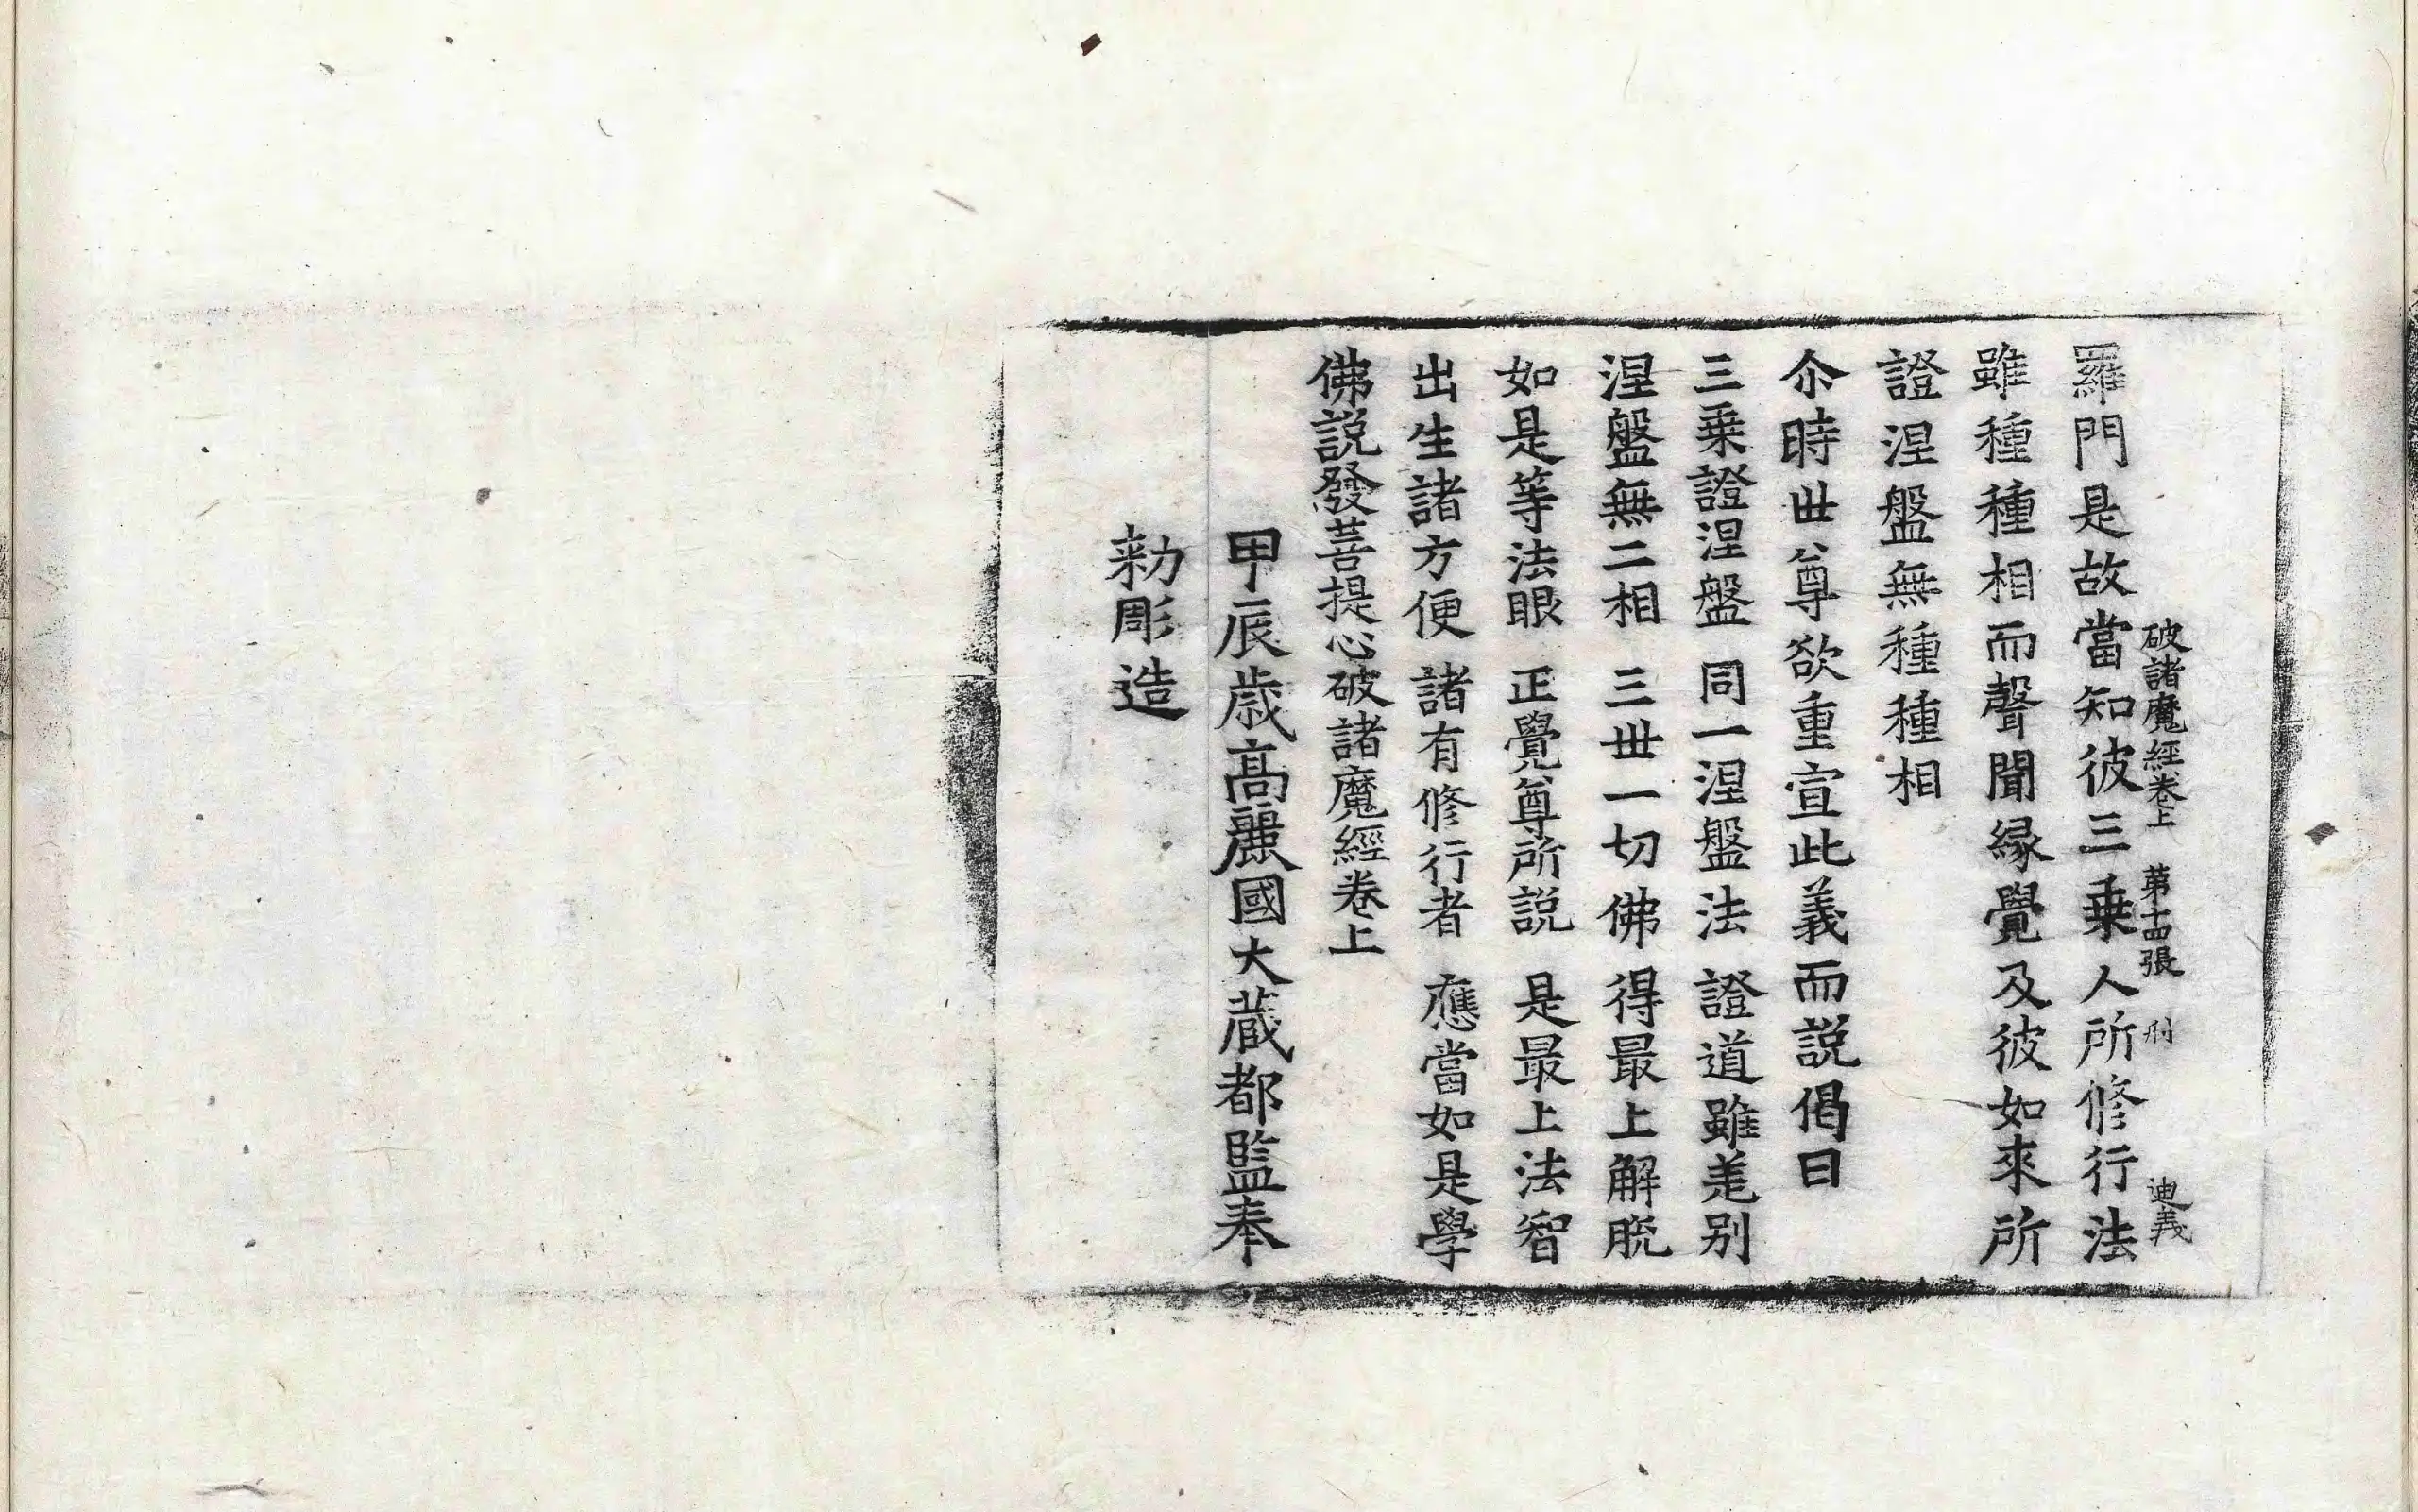 破諸魔經卷上 第十四張 刑 迪義
羅門是故當知彼三乗人所修行法
雖種種相而聲聞縁覺及彼如來所
證涅盤無種種相
尒時世尊欲重宣此義而說偈曰
三乗證涅盤 同一涅盤法 證道雖差别
涅盤無二相 三世一切佛 得最上解脫
如是等法眼 正覺尊所說 是最上法智
出生諸方便 諸有修行者 應當如是學
佛說發菩提心破諸魔經卷上
甲辰歳髙麗國大蔵都監奉
勑彫造